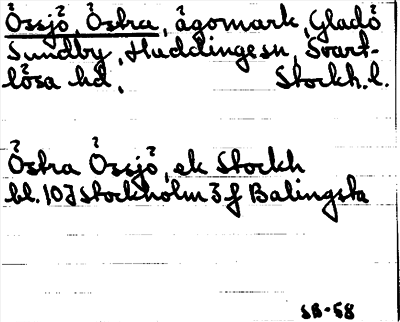 Össjö, Östra, ägomark, Gladö
Sundby, Huddinge sn, Svart-
lösa hd, Stockh. l.
Östra Össjö, ek Stockh
bl. 10J Stockholm 3f Balingsta
SB-58